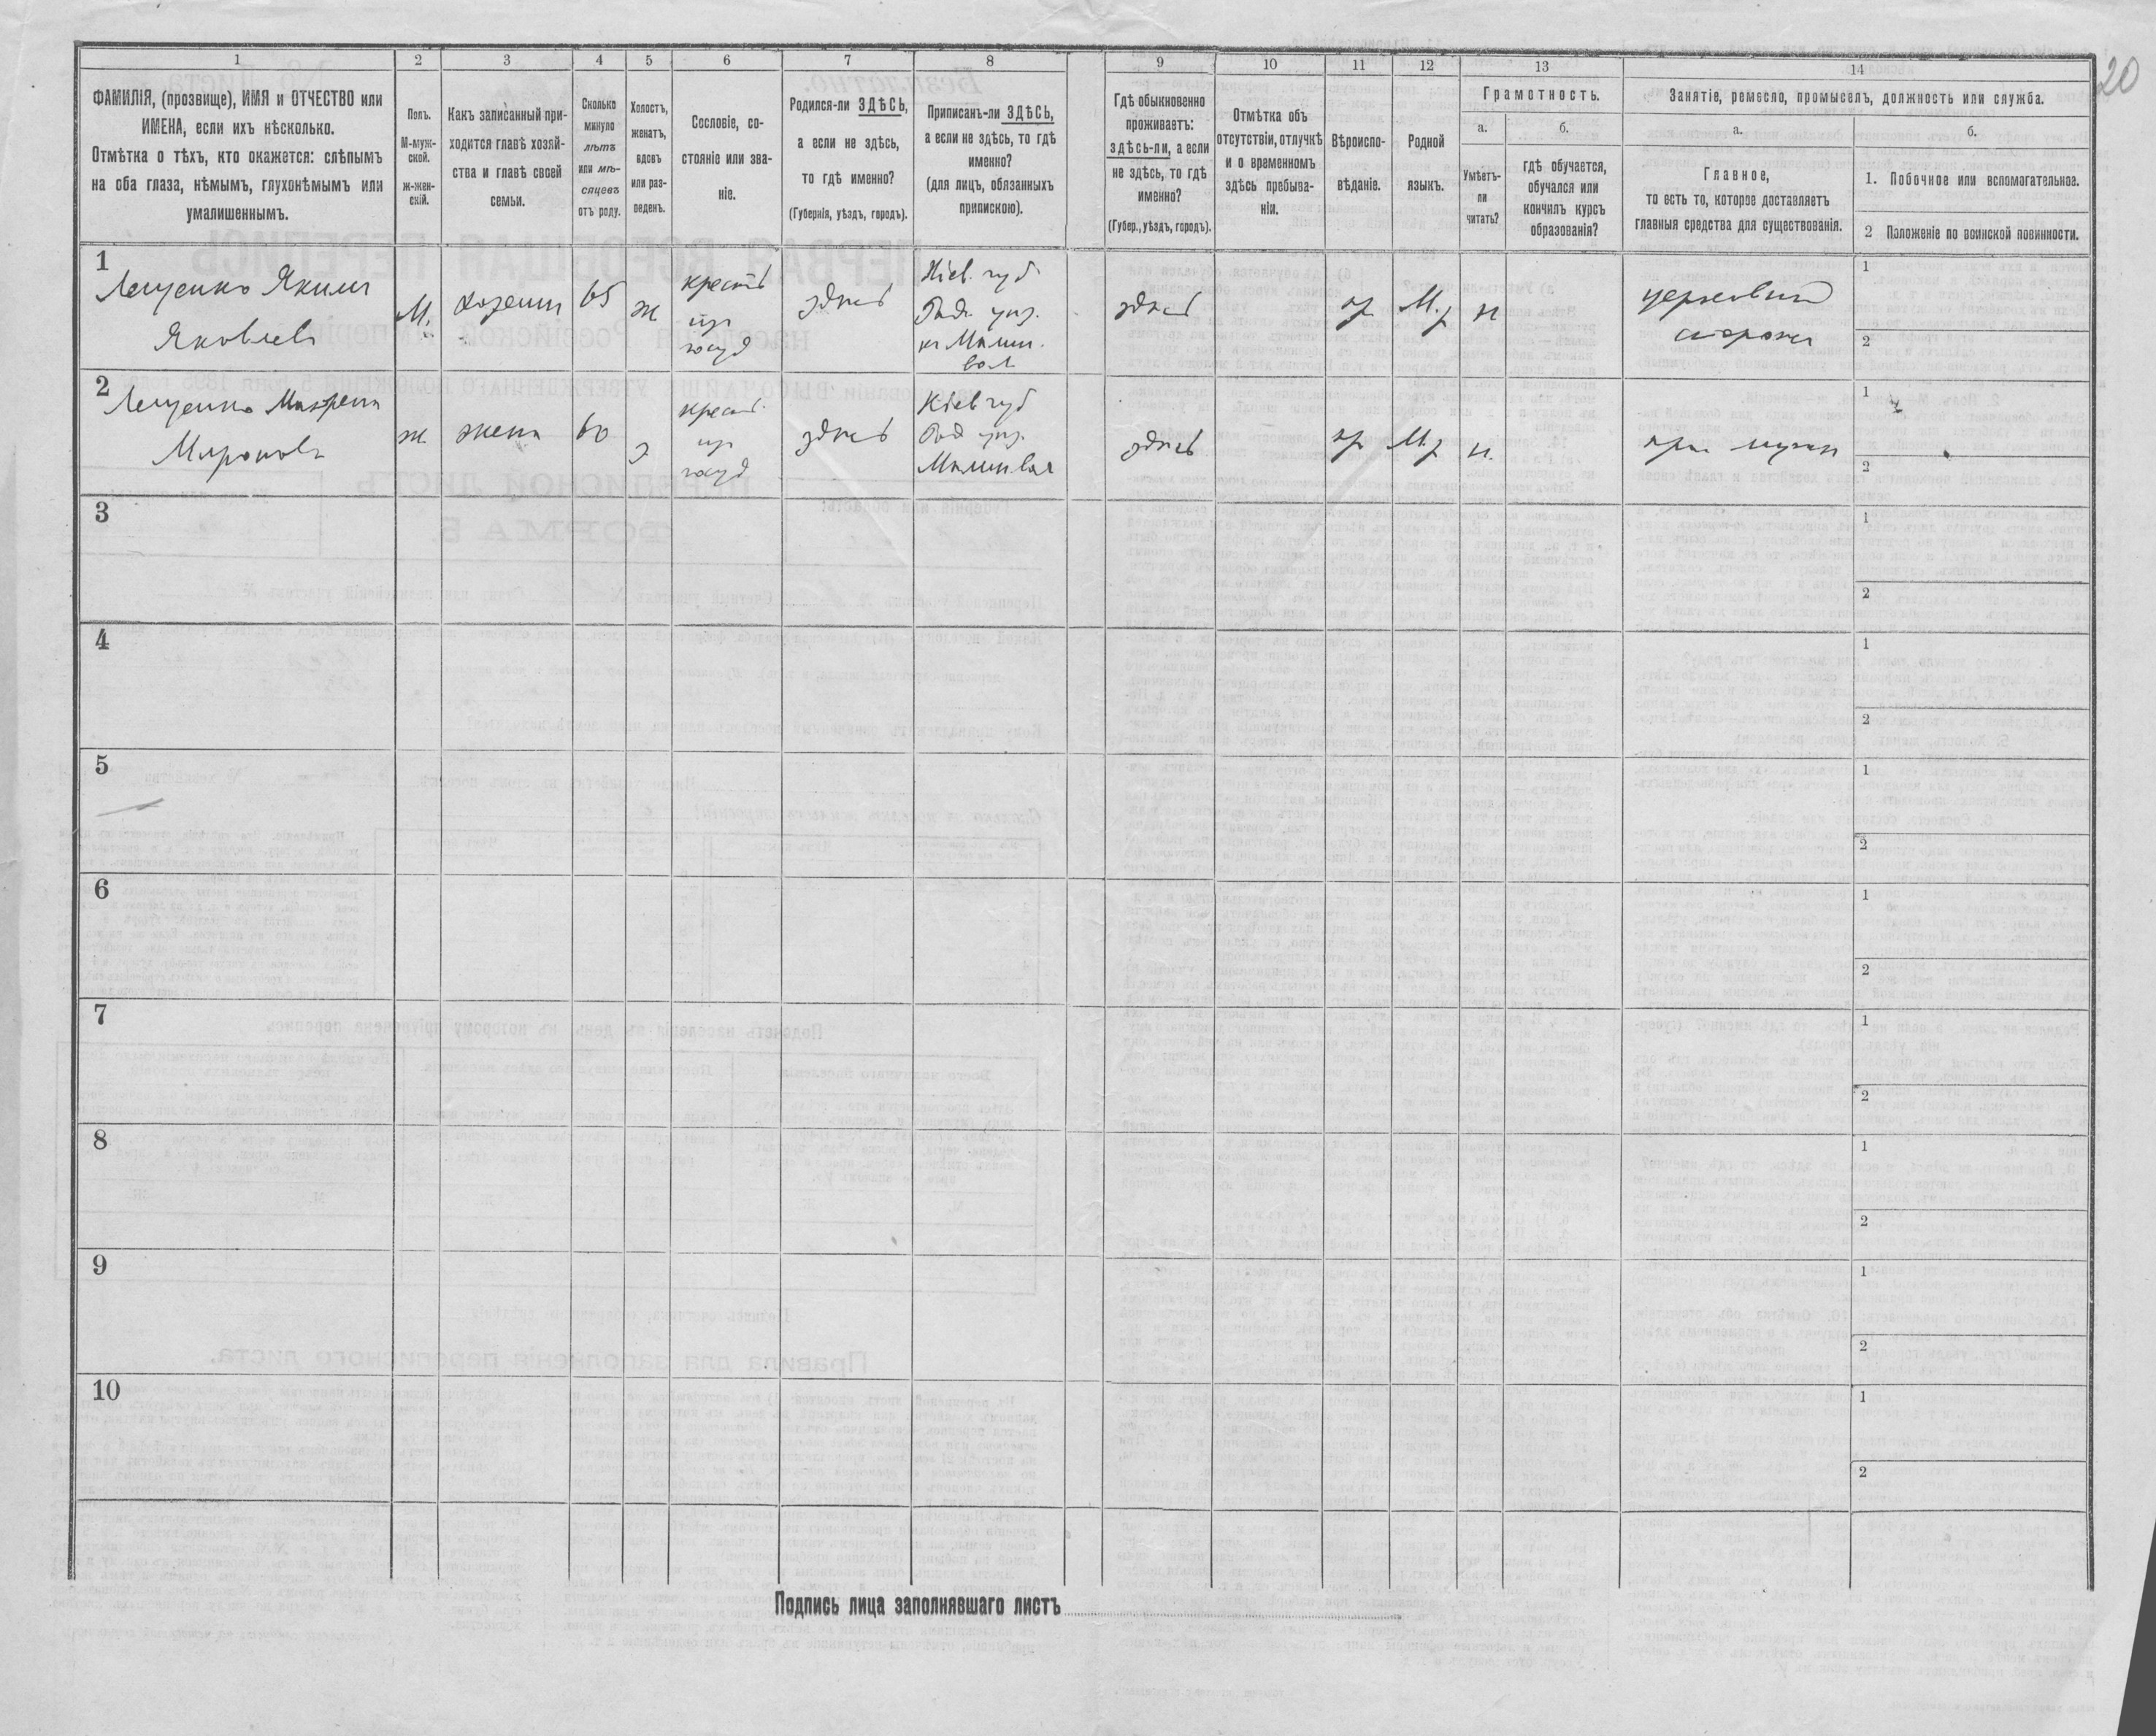 20
1
2
3
4
5
6
7
8
9
10
11
12
13
14
ФАМИЛІЯ, (прозвище), ИМЯ и ОТЧЕСТВО или
ИМЕНА, если ихъ нѣсколько.
Отмѣтка о тѣхъ, кто окажется: слѣпымъ
на оба глаза, нѣмымъ, глухонѣмымъ или
умалишеннымъ.
Полъ.
М-муж-
ской.
ж-жен-
скій.
Какъ записанный при-
ходится главѣ хозяй-
ства и главѣ своей
семьи.
Сколько
минуло
лѣтъ
или мѣ-
сяцевъ
отъ роду.
Холостъ,
женатъ,
вдовъ
или раз-
веденъ.
Сословіе, со-
стояніе или зва-
ніе.
Родился-ли ЗДѢСЬ,
а если не здѣсь,
то гдѣ именно?
(Губернія, уѣздъ, городъ).
Приписанъ-ли ЗДѢСЬ,
а если не здѣсь, то гдѣ
именно?
(для лицъ, обязанныхъ
припискою).
Гдѣ обыкновенно
проживаетъ:
здѣсь-ли, а если
не здѣсь, то гдѣ
именно?
(Губер., уѣздъ, городъ).
Отмѣтка объ
отсутствіи, отлучкѣ
и о временномъ
здѣсь пребыва-
ніи.
Вѣроиспо-
вѣданіе.
Родной
языкъ.
Грамотность.
а.
Умѣетъ-
ли
читать?
б.
гдѣ обучается,
обучался или
кончилъ курсъ
образованія?
Занятіе, ремесло, промыселъ, должность или служба.
а.
Главное,
то есть то, которое доставляетъ
главныя средства для существованія.
б.
1. Побочное или вспомогательное.
2 Положеніе по воинской повинности.
1
Лещенко Яким
Яковлев
М.
хозяин
65
ж
крест
из
госуд
здесь
Кіев. губ
Рад. уез.
Малин.
вол
здесь
пр
М.р
н
церковный
сторож
1
2
2
Лещенко Макрена
Миронова
ж.
жена
60
з
крест.
из
госуд
здесь
Кіев губ
Рад уез.
Малин вол
здесь
пр
М.р
н.
при муже
1
2
3
1
2
4
1
2
5
1
2
6
1
2
7
1
2
8
1
2
9
1
2
10
1
2
Подпись лица заполнявшаго листъ